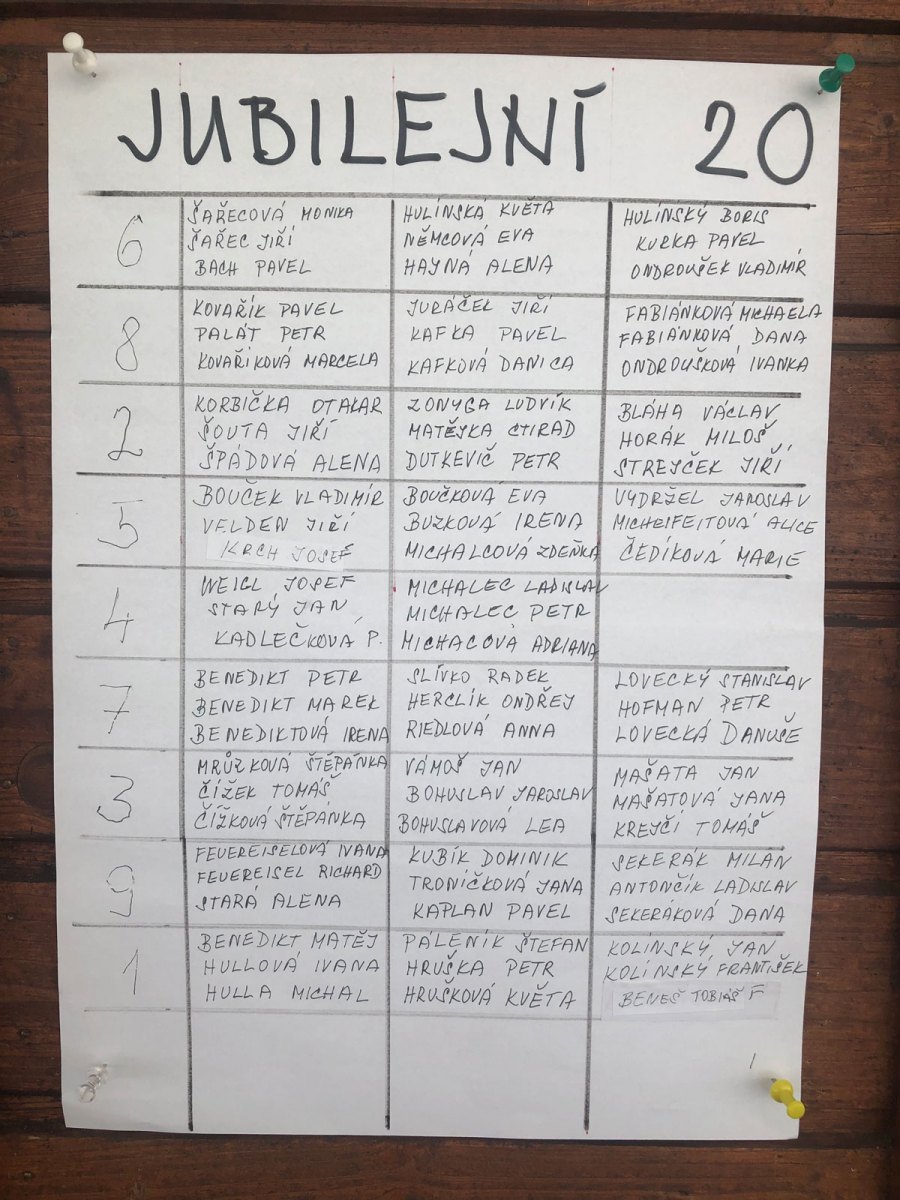 JUBILEJNÍ 20
6
ŠAŘECOVÁ MONIKA
ŠAŘEC JIŘÍ
BACH PAVEL
HULÍNSKÁ KVĚTA
NĚMCOVÁ EVA
HAYNÁ ALENA
HULÍNSKÝ BORIS
KURKA PAVEL
ONDROUŠEK VLADIMÍR
8
KOVAŘÍK PAVEL
PALÁT PETR
KOVAŘÍKOVÁ MARCELA
JURÁČEK JIŘÍ
KAFKA PAVEL
KAFKOVÁ DANICA
FABIÁNKOVÁ MICHAELA
FABIÁNKOVÁ DANA
ONDROUŠKOVÁ IVANKA
2
KORBIČKA OTAKAR
ŠOUTA JIŘÍ
ŠPÁDOVÁ ALENA
ZONYGA LUDVÍK
MATĚJKA CTIRAD
DUTKEVIČ PETR
BLÁHA VÁCLAV
HORÁK MILOŠ
STREJČEK JIŘÍ
5
BOUČEK VLADIMÍR
VELDEN JIŘÍ
KRCH JOSEF
BOUČKOVÁ EVA
BUZKOVÁ IRENA
MICHALCOVÁ ZDEŇKA
VYDRŽEL JAROSLAV
MICHLFEITOVÁ ALICE
ČEDÍKOVÁ MARIE
4
WEIGL JOSEF
STARÝ JAN
KADLEČKOVÁ P.
MICHALEC LADISLAV
MICHALEC PETR
MICHACOVÁ ADRIANA
7
BENEDIKT PETR
BENEDIKT MAREK
BENEDIKTOVÁ IRENA
SLÍVKO RADEK
HERCLÍK ONDŘEJ
RIEDLOVÁ ANNA
LOVECKÝ STANISLAV
HOFMAN PETR
LOVECKÁ DANUŠE
3
MRŮZKOVÁ ŠTĚPÁNKA
ČÍŽEK TOMÁŠ
ČÍŽKOVÁ ŠTĚPÁNKA
VÁMOŠ JAN
BOHUSLAV JAROSLAV
BOHUSLAVOVÁ LEA
MAŠATA JAN
MAŠATOVÁ JANA
KREJČÍ TOMÁŠ
9
FEUEREISELOVÁ IVANA
FEUEREISEL RICHARD
STARÁ ALENA
KUBÍK DOMINIK
TRONÍČKOVÁ JANA
KAPLAN PAVEL
SEKERÁK MILAN
ANTONČÍK LADISLAV
SEKERÁKOVÁ DANA
1
BENEDIKT MATĚJ
HULLOVÁ IVANA
HULLA MICHAL
PÁLENÍK ŠTEFAN
HRUŠKA PETR
HRUŠKOVÁ KVĚTA
KOLÍNSKÝ JAN
KOLÍNSKÝ FRANTIŠEK
BENEŠ TOBIÁŠ F